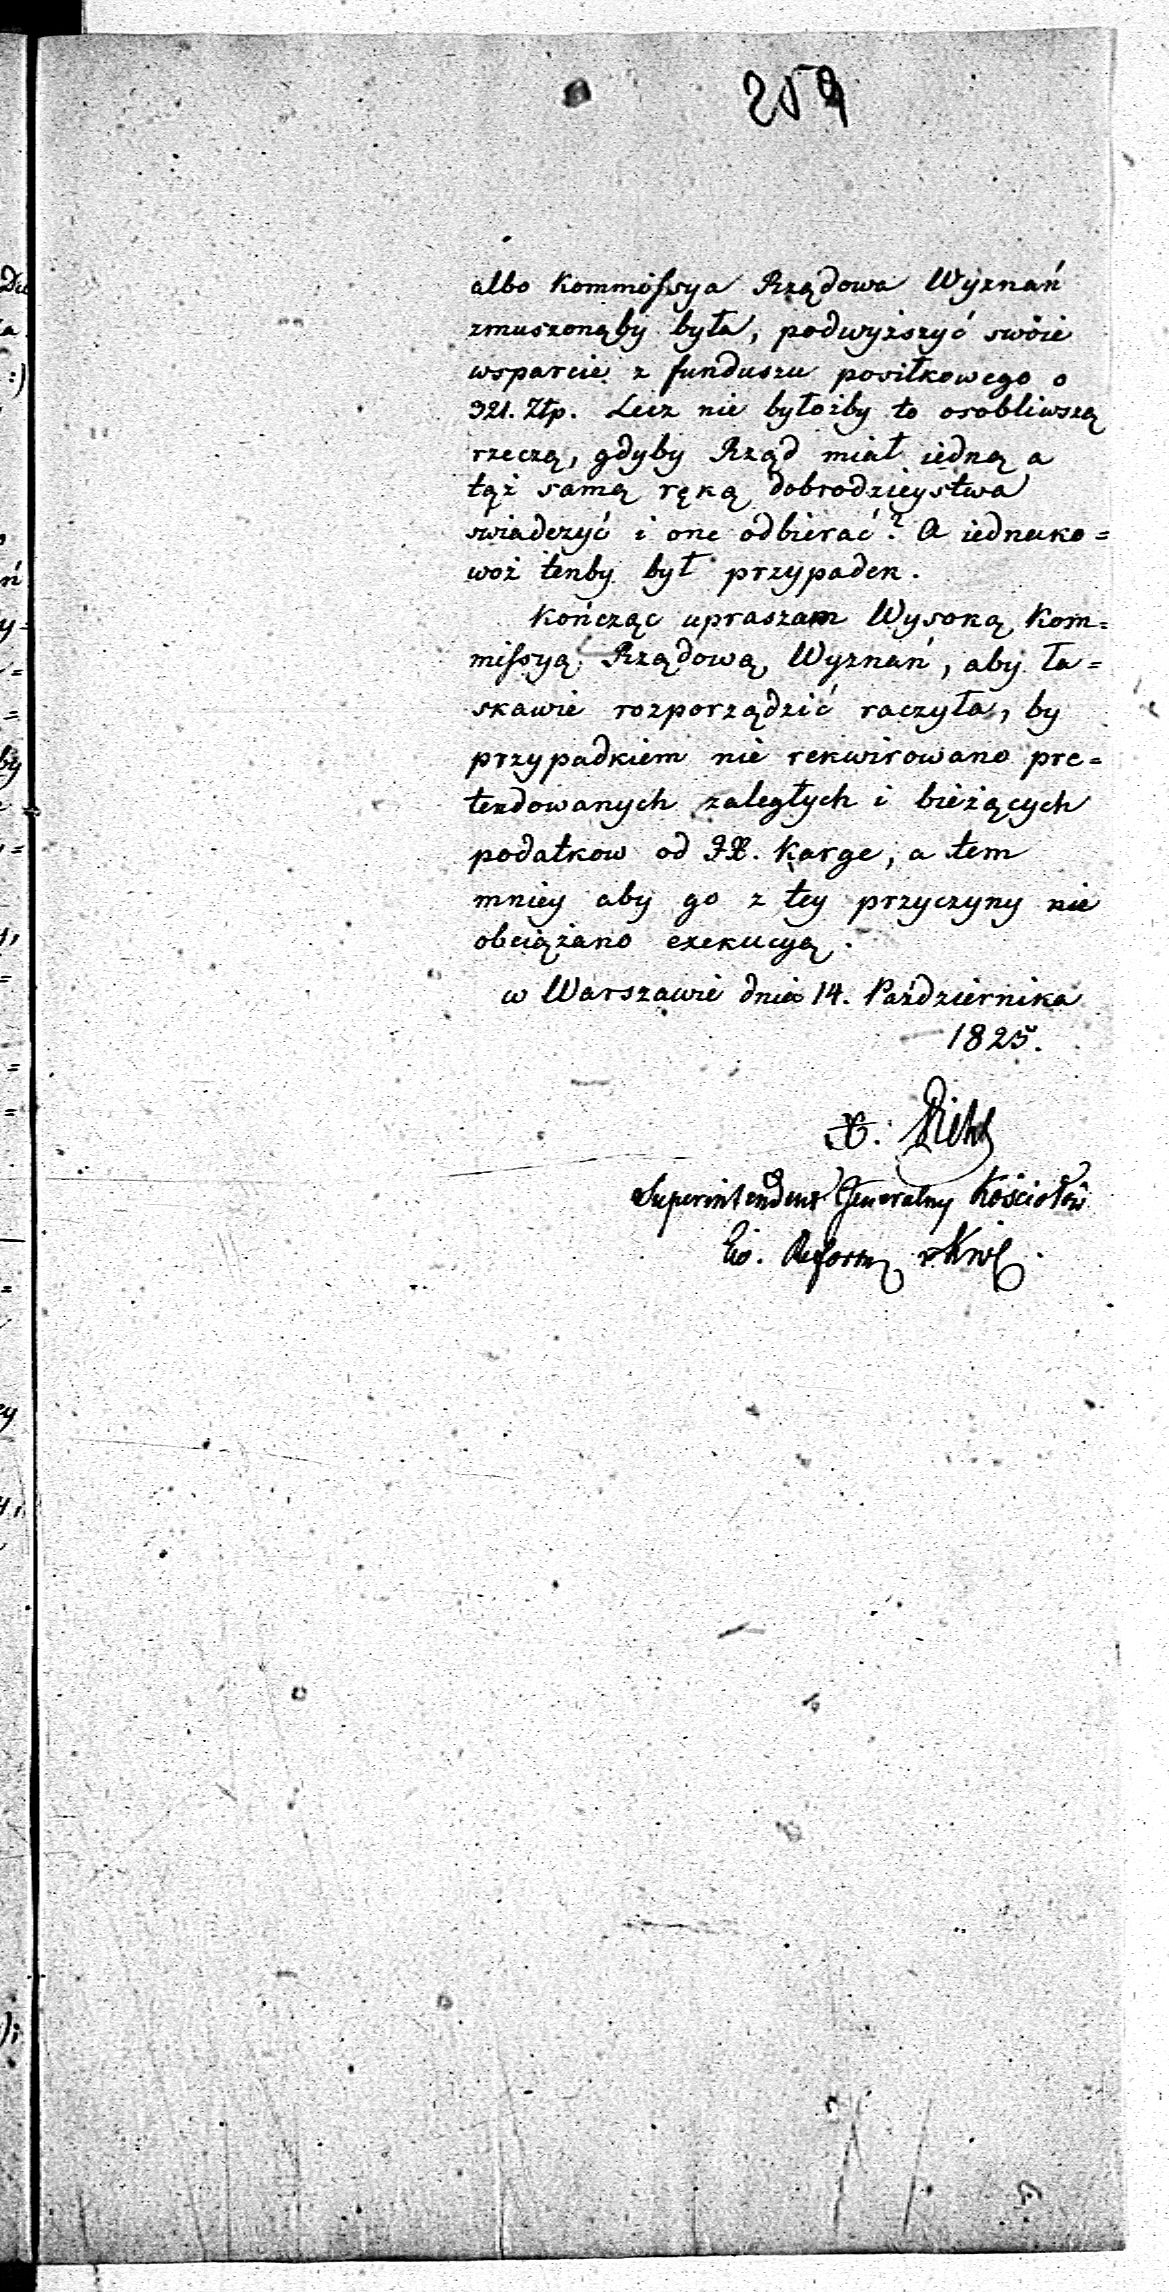 259
albo Kommissya Rządowa Wyznań
zmuszonąby była, podwyższyć swóie
wsparcie z funduszu posiłkowego o
321. Złp. Lecz nie byłożby to osobliwszą
rzeczą, gdyby Rząd miał iedną a
tąż samą ręką dobrodzieystwa
swiadczyć i one odbierać? A iednako=
woż tenby był przypadek.
Kończąc upraszam Wysoką Kom=
missyą Rządową Wyznań, aby ła=
skawie rozporządzić raczyła, by
przypadkiem nie rekwirowano pre=
tendowanych zaległych i bieżących
podatkow od JX. Karge, a tem
mniey aby go z tey przyczyny nie
obciążano exekucyą.
w Warszawie dnia 14. Października
1825.
X. Diehl
Superintendent Generalny Kościołów
Ew. Reform w Król